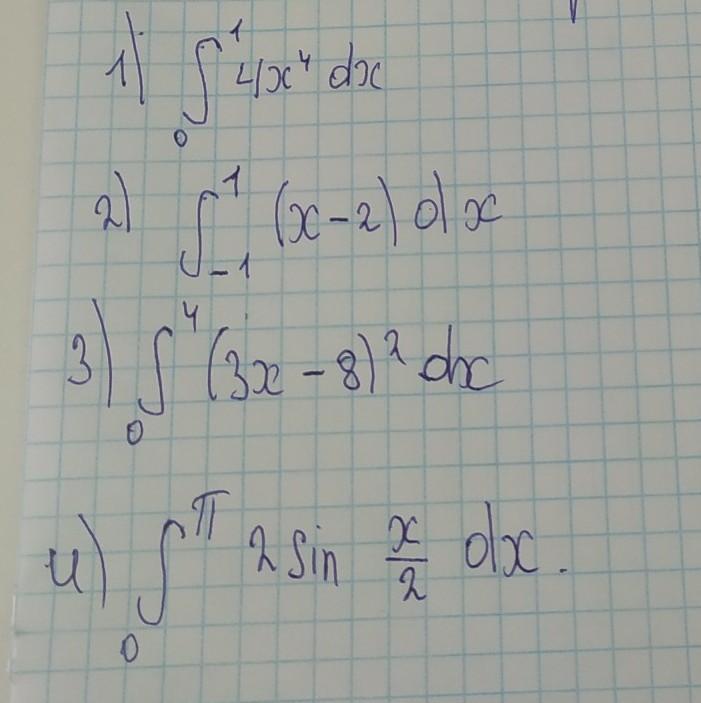 1) ∫₀¹ 4x⁴ dx
2) ∫₋₁¹ (x-2) dx
3) ∫₀⁴ (3x-8)² dx
4) ∫₀^π 2 sin x/2 dx.